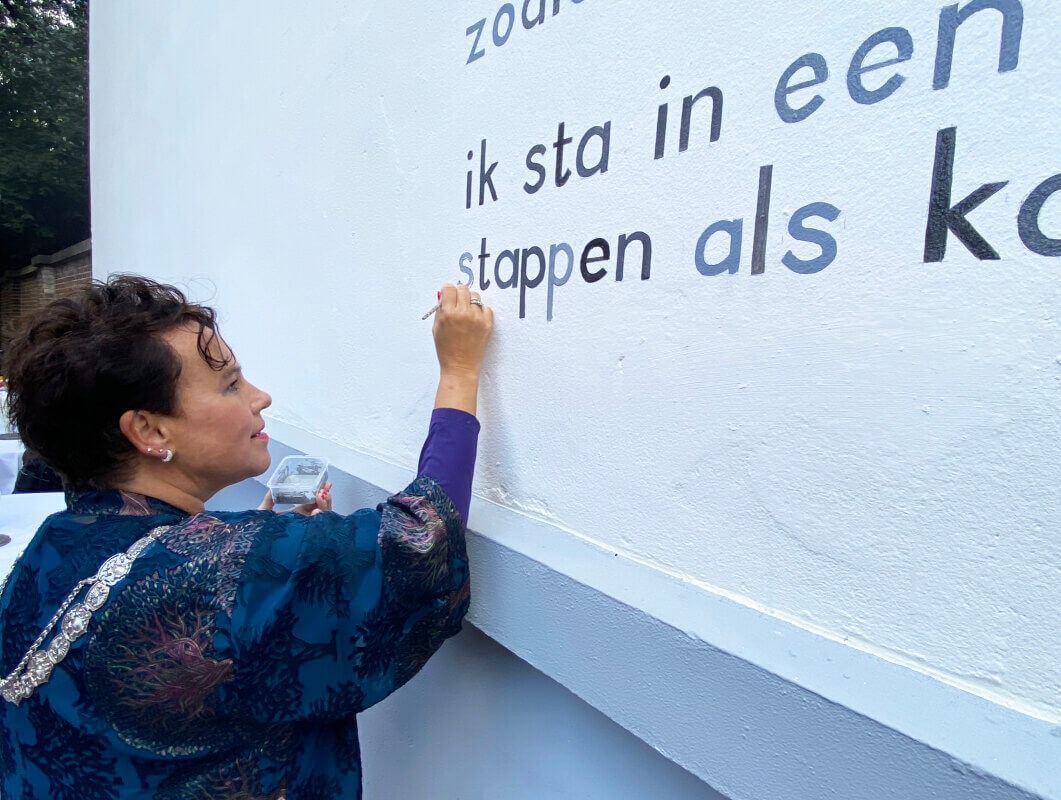 ik sta in een
stappen als